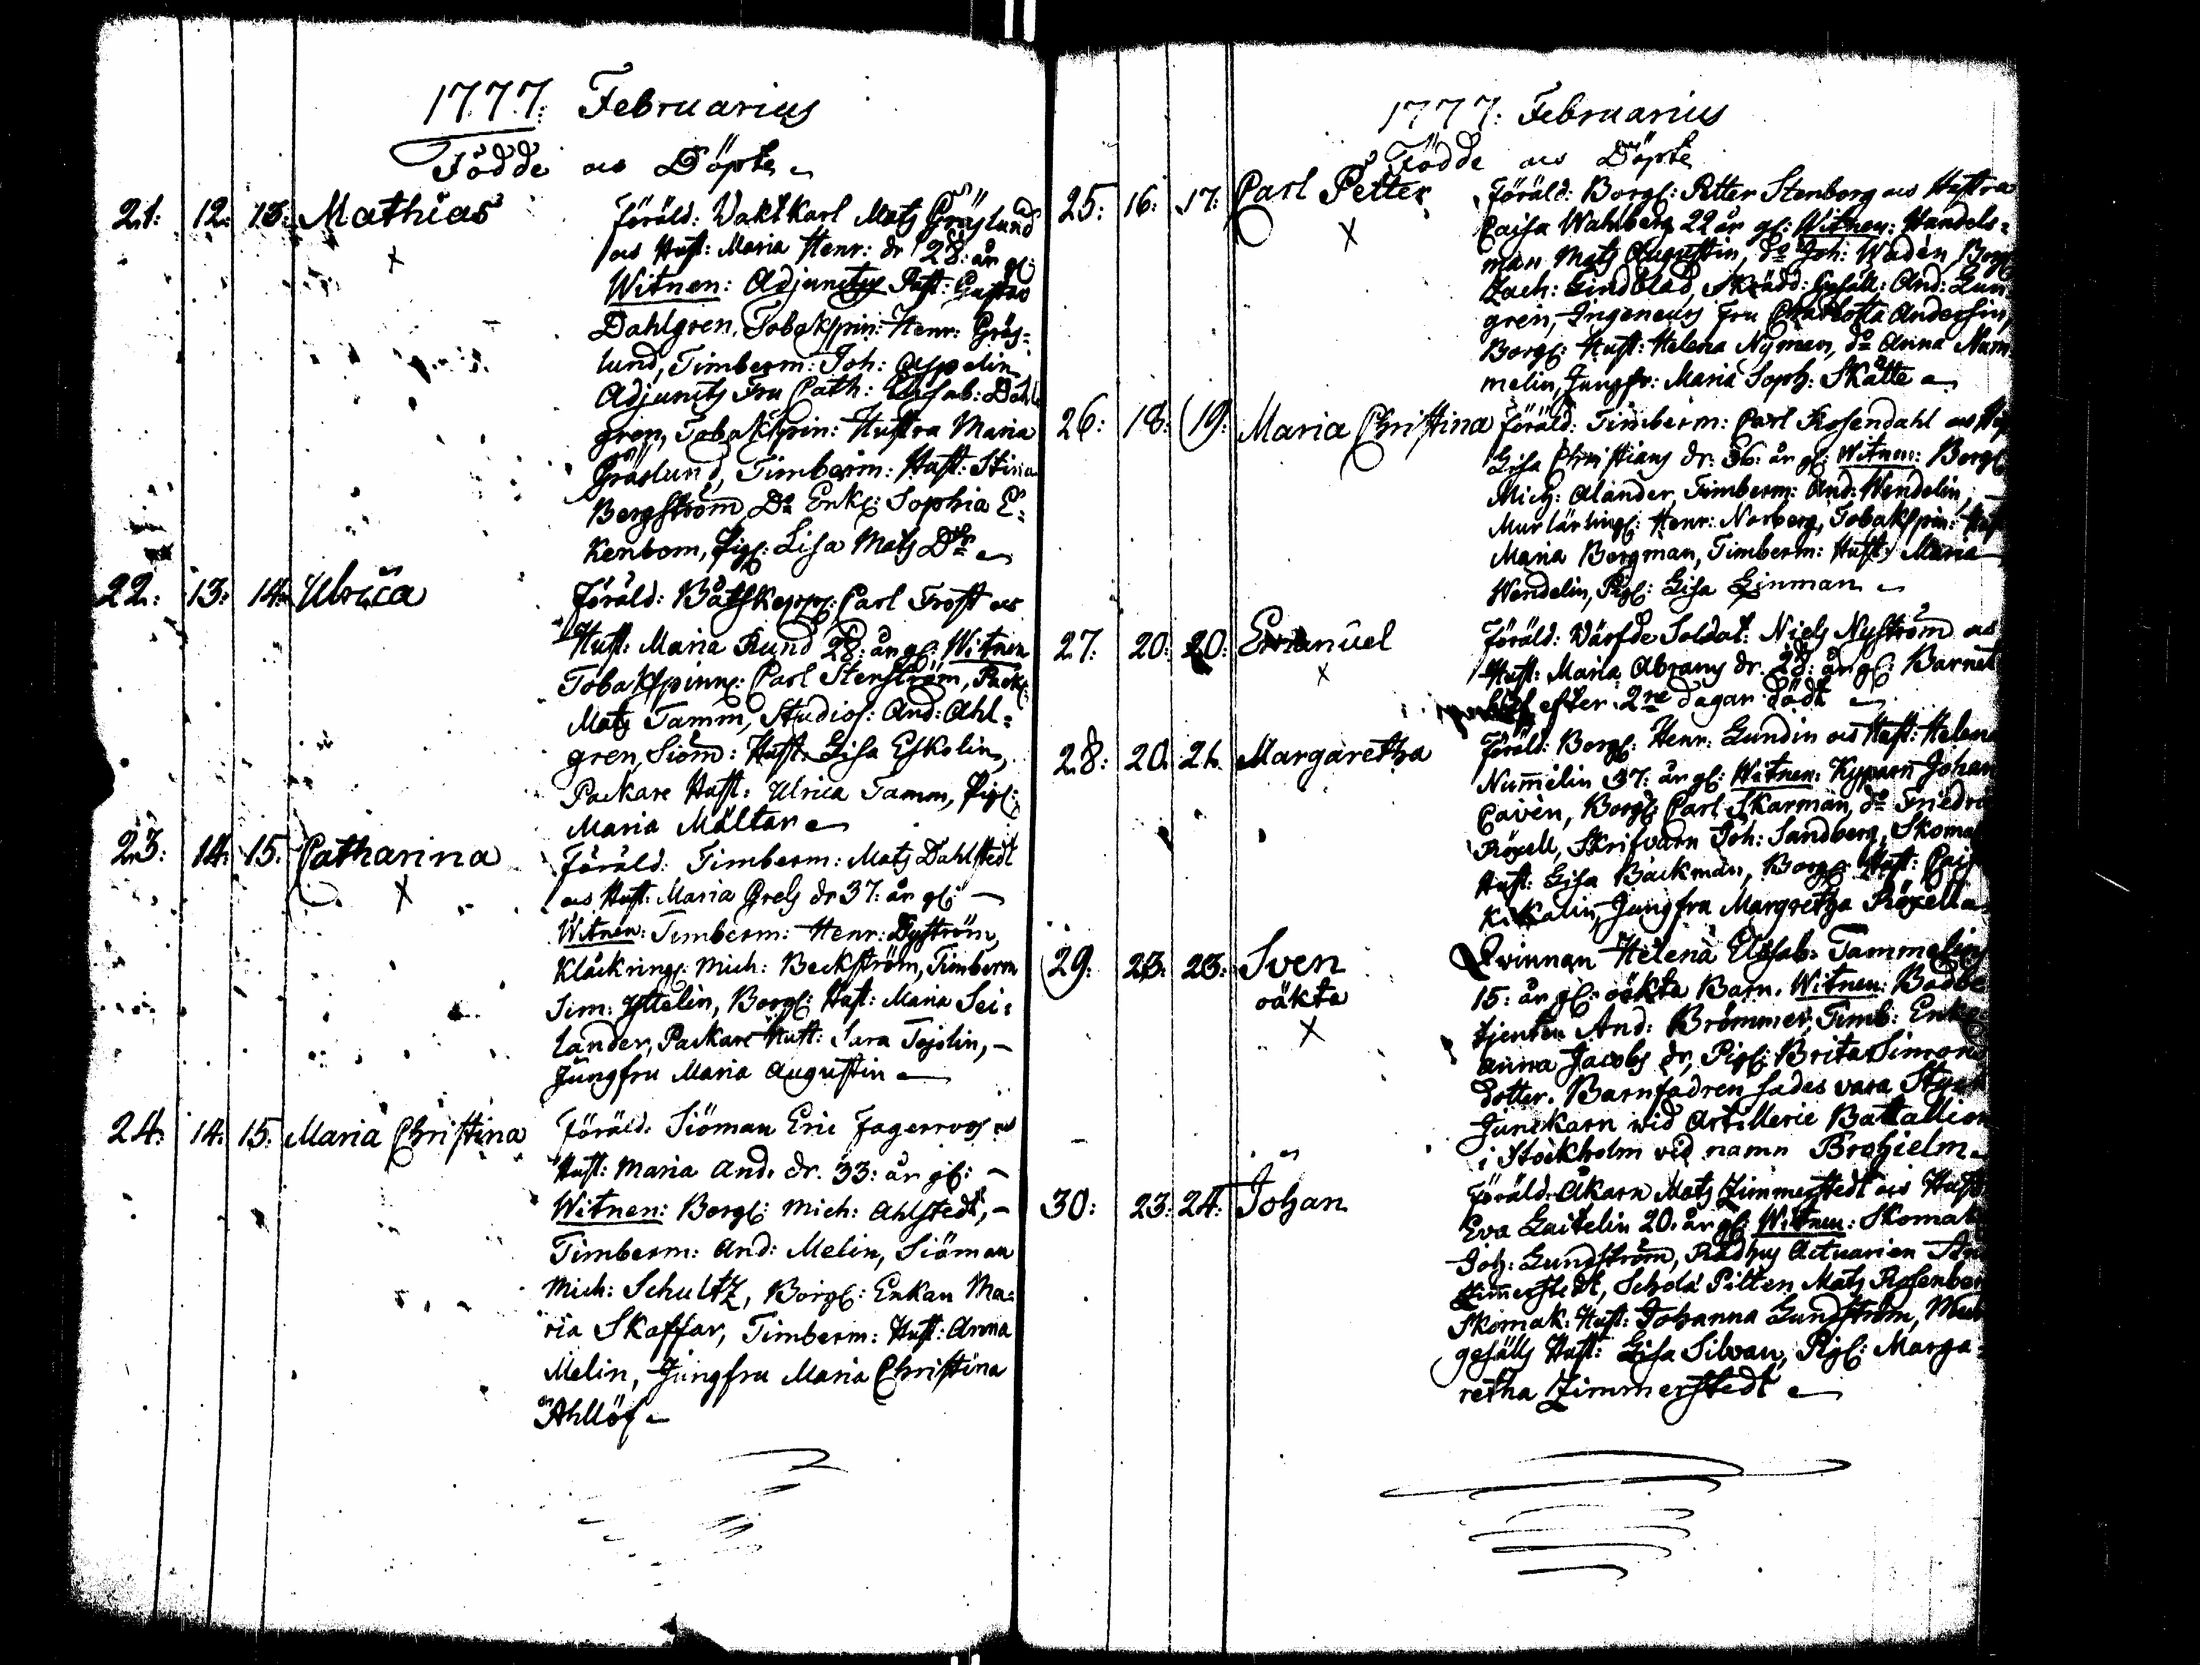 1777: Februarius
Födde och Döpte
21: 12: 13: Mathias Föräld: Waktkarl Matz Gröslund
och Hust: Maria Henr: dr 28: år gl:
Witnen: Adjunctus Past: Gustav
Dahlgren, Tobakspin: Henr: Grös-
lund, Timberm: Joh: Aspelin
Adjuncts Fru Cath: Elisab: Dahl
gren, Tobakspin: Hustra Maria
Gröslund, Timberm: Hust: Stina
Bergström Do Enk: Sophia E-
kenbom, Pig: Lisa Mats Dr
22: 13: 14: Ulrica Föräld: Båtsk Carl Frost och
Hust: Maria Rund 28: år gl: Witnen
Tobakspinn: Carl Stenström, Pack:
Matz Tamm, Studios: And: Ahl-
gren, Siöm: Hust: Lisa Eskolin,
Packare Hust: Ulrica Tamm, Pig:
Maria Mältar
23: 14: 15: Catharina Föräld: Timberm: Matz Dahlstedt
och Hust: Maria Grels dr 37: år gl:
Witnen: Timberm: Henr: Dyström,
Klåckring: Mich: Beckström, Timberm
Sim: Yttelin, Borg: Hust: Maria Sei-
lander, Packare Hust: Sara Tejolin,
Jungfru Maria Augustin
24: 14: 15: Maria Christina Föräld: Siöman Eric Fagerroos och
Hust: Maria And: dr. 33: år gl:
Witnen: Borg: Mich: Ahlstedt,
Timberm: And: Melin, Siöman
Mich: Schultz, Borg: Enkan Ma-
ria Skaffar, Timberm: Hust: Anna
Melin, Jungfru Maria Christina
Ahllöf
1777: Februarius
Födde och Döpte
25: 16: 17: Carl Petter Föräld: Borg: Petter Stenborg och Hustra
Caisa Wahlberg 22 år gl: Witnen: Handels-
man Matz Augustin, do Joh: Wadén, Borg
Zach: Lindblad, Skrädd: Gesäll: And: Lun
gren, Ingeneurs Fru Charlotta Andersin,
Borg: Hust: Helena Nyman, do Anna Num
melin, Jungfr: Maria Soph: Skåtte
26: 18: 19: Maria Christina Föräld: Timberm: Carl Rosendahl och Hu
Lisa Christians dr: 36: år gl: Witnen: Borg:
Mich: Alander, Timberm: And: Wendelin,
Murlärling: Henr: Norberg, Tobakspin: Hust
Maria Bergman, Timberm: Hust: Maria
Wendelin, Pig: Lisa Linman
27: 20: 20: Emanuel Föräld: Wärfde Soldat: Niels Nyström och
Hust: Maria Abrams dr. 28: år gl: Barnet
efter 2ne dagar dödt
28: 20. 21. Margaretha Föräld: Borg: Henr: Lundin och Hust: Helena
Nummelin 37: år gl: Witnen: Kyparn Johan
Cavén, Borg: Carl Skarman, do Friedr
Röxell, Skrifvarn Joh: Sandberg, Skoma
Hust: Lisa Backman, Borg: Hust: Cajs
Kikalin, Jungfru Margretha Röxell
29: 23: 23: Sven Qvinnan Helena Elisab: Tammelin
oäkta 15: år gl: oäkta Barn. Witnen: Bod be
tjenten And: Brommer, Timb: Enk
Anna Jacobs dr, Pig: Brita Simons
Dotter. Barnfadren sades vara Styck
Junckarn wid Artillerie Battallion
i Stockholm vid namn Brohielm
30: 23: 24: Johan Föräld: Åkarn Matz Zimmerstedt och Hust
Eva Laitelin 20. år gl: Witnen: Skomak
Joh: Lundström, Rådhus Actuarien An
Zimmerstedt, Schola Pilten Matz Rosenber
Skomak: Hust: Johanna Lundström, Mur
gesälls Hust: Lisa Silvan, Pig: Marga-
retha Zimmerstedt